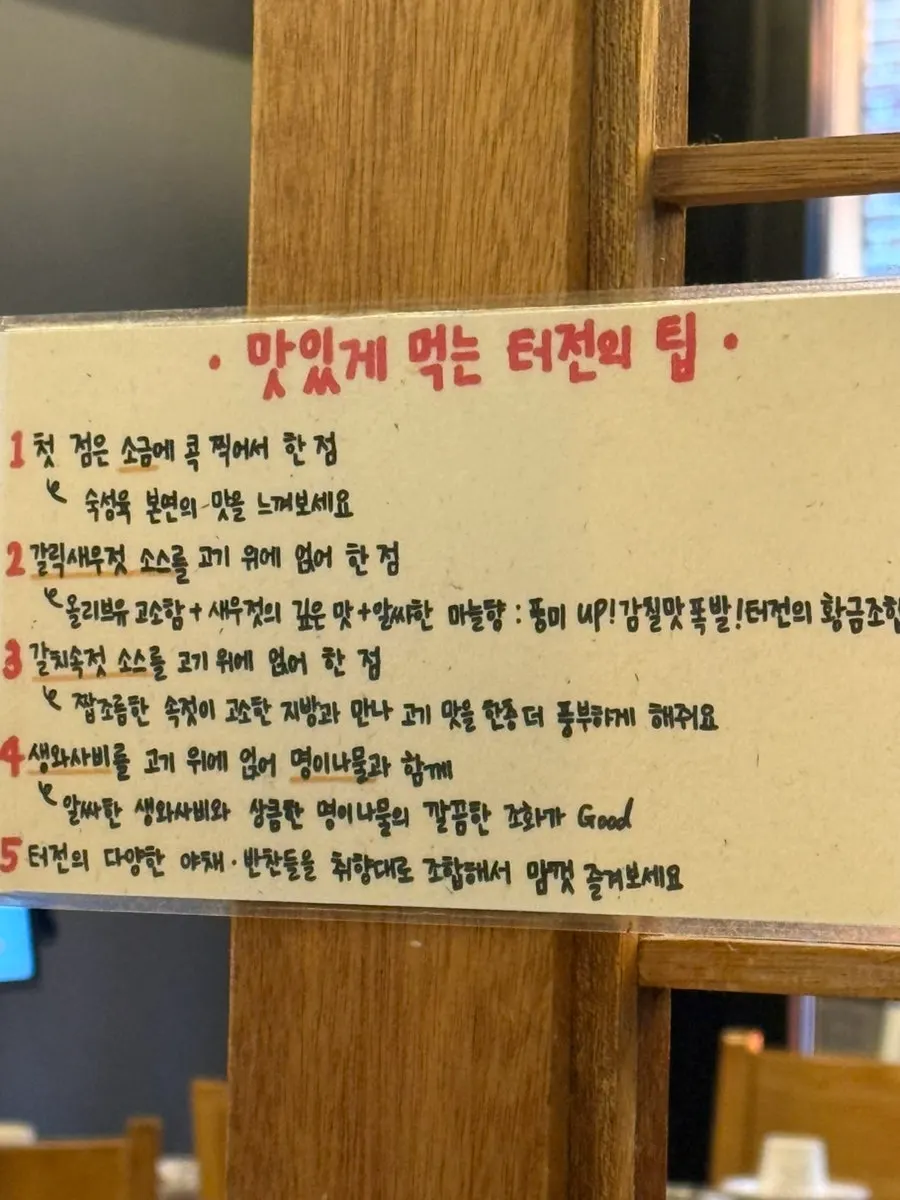 · 맛있게 먹는 터전의 팁 ·
1 첫 점은 소금에 콕 찍어서 한 점
숙성육 본연의 맛을 느껴보세요
2 갈릭새우젓 소스를 고기 위에 얹어 한 점
올리브유 고소함 + 새우젓의 깊은 맛 + 알싸한 마늘향 : 풍미 UP! 감칠맛 폭발! 터전의 황금조합
3 갈치속젓 소스를 고기 위에 얹어 한 점
짭조름한 속젓이 고소한 지방과 만나 고기 맛을 한층 더 풍부하게 해줘요
4 생와사비를 고기 위에 얹어 명이나물과 함께
알싸한 생와사비와 상큼한 명이나물의 깔끔한 조화가 Good
5 터전의 다양한 야채 · 반찬들을 취향대로 조합해서 맘껏 즐겨보세요